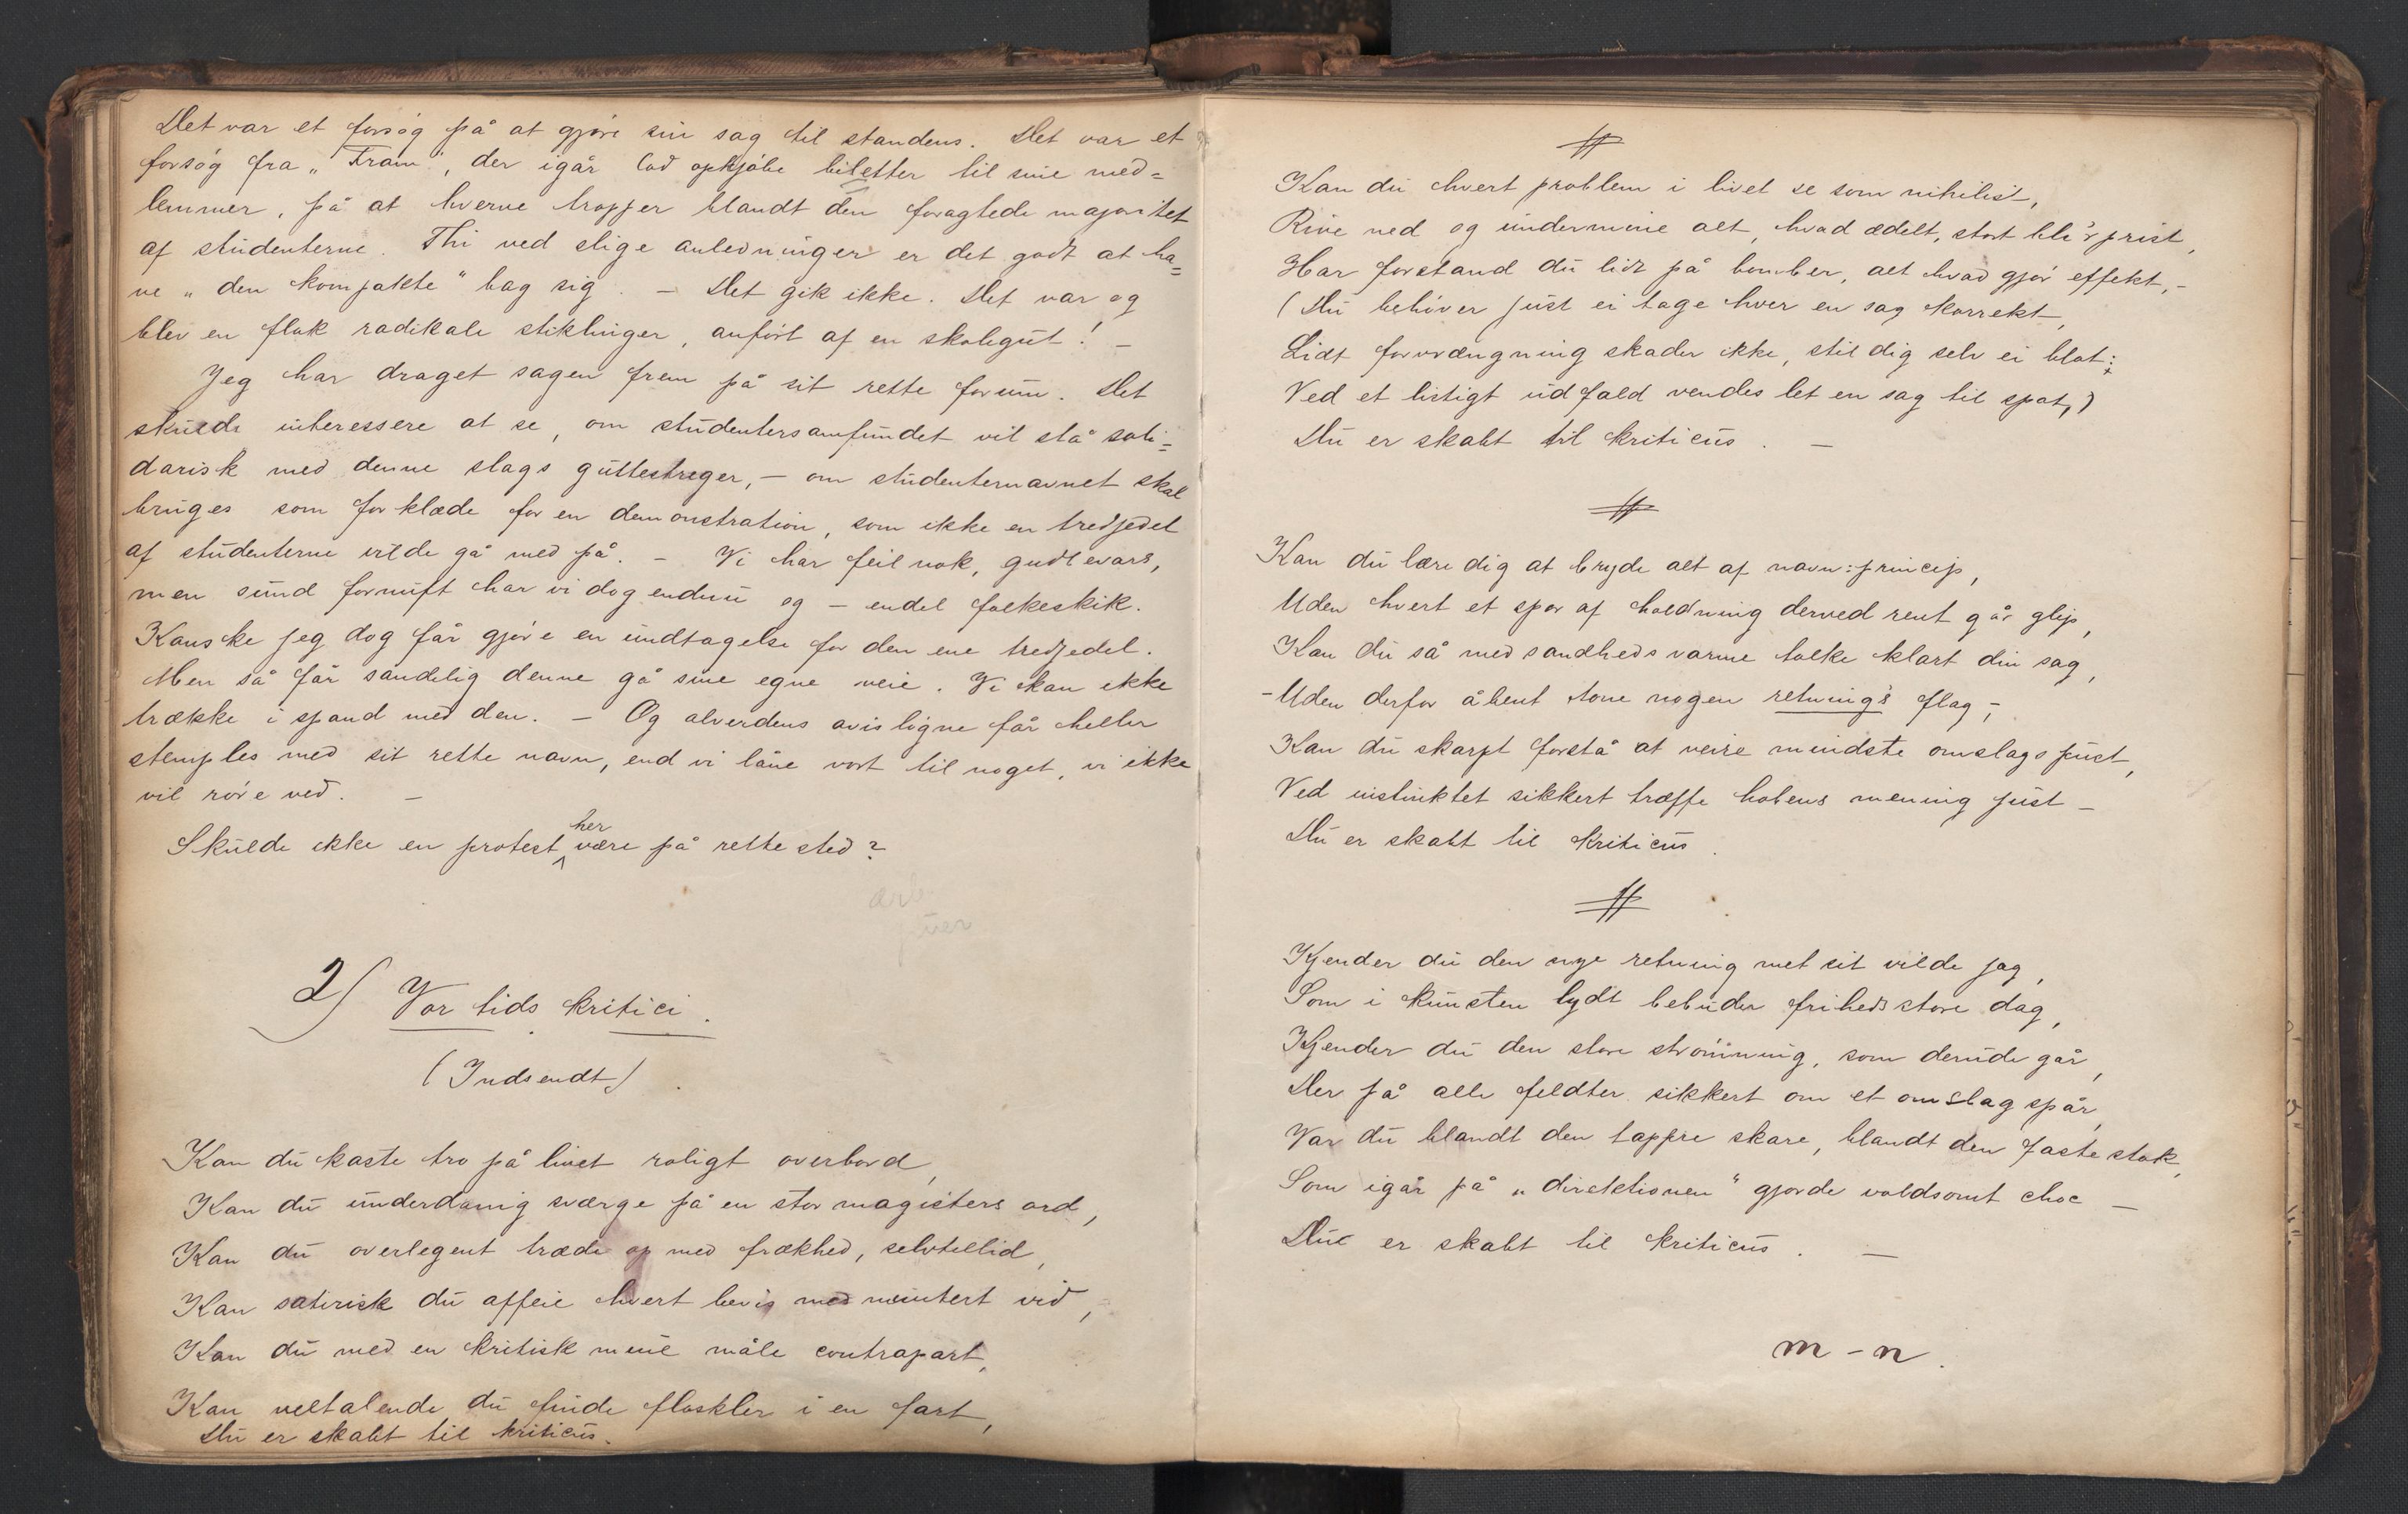 Det var et forsøg på at gjøre sin sag til standens. Det var et
forsøg fra „Fram", der igår lod opkjøbe biletter til sine med=
lemmer, på at hverve tropper blandt den foragtede majoritet
af studenterne. Thi ved slige anledninger er det godt at ha=
ve „den kompakte" bag sig. – Det gik ikke. Det var og
blev en flok radikale stiklinger, anført af en skolegut! –
Jeg har draget sagen frem på sit rette forum. Det
skulde interessere at se, om studentersamfundet vil stå soli=
darisk med denne slags guttestreger, – om studenternavnet skal
bruges som forklæde for en demonstration, som ikke en tredjedel
af studenterne vilde gå med på. – Vi har feil nok, gudbevars,
men sund fornuft har vi dog endnu og – endel folkeskik.
Kanske jeg dog får gjøre en undtagelse for den ene tredjedel.
Men så får sandelig denne gå sine egne veie. Vi kan ikke
trække i spand med den. – Og alverdens avisløgne får heller
stemples med sit rette navn, end vi låne vort til noget, vi ikke
vil røre ved. –
Skulde ikke en protest her være på rette sted?
2) Vor tids kritici.
(Indsendt).
Kan du kaste tro på livet roligt overbord,
Kan du underdanig sværge på en stor magisters ord,
Kan du overlegent træde op med frækhed, selvtillid,
Kan satirisk du affeie hvert bevis med muntert vid,
Kan du med en kritisk mine måle contrapart,
Kan veltalende du finde floskler i en fart,
Du er skabt til kriticus.
Kan du hvert problem i livet se som nihilist,
Rive ned og underminere alt, hvad ædelt, stort bli'r prist,
Har forstand du lidt på bomber, alt hvad gjør effekt, –
(Du behøver just ei tage hver en sag korrekt,
Lidt forvrængning skader ikke, stil dig selv ei blot;
Ved et listigt udfald vendes let en sag til spot,)
Du er skabt til kriticus. –
Kan du lære dig at bryde alt af navn: princip,
Uden hvert et spor af holdning derved rent går glip,
Kan du så med sandheds varme tolke klart din sag,
– Uden derfor åbent tone nogen retnings flag, –
Kan du skarpt forstå at veire mindste omslags pust,
Ved instinktet sikkert træffe hobens mening just –
Du er skabt til kriticus.
Kjender du den nye retning met sit vilde jag,
Som i kunsten lydt bebuder friheds store dag,
Kjender du den store strømning, som derude går,
Der på alle feldter sikkert om et omslag spår,
Var du blandt den tappre skare, blandt den faste stok,
Som igår på „direktionen" gjorde voldsomt choc –
Du er skabt til kriticus. –
m – n.